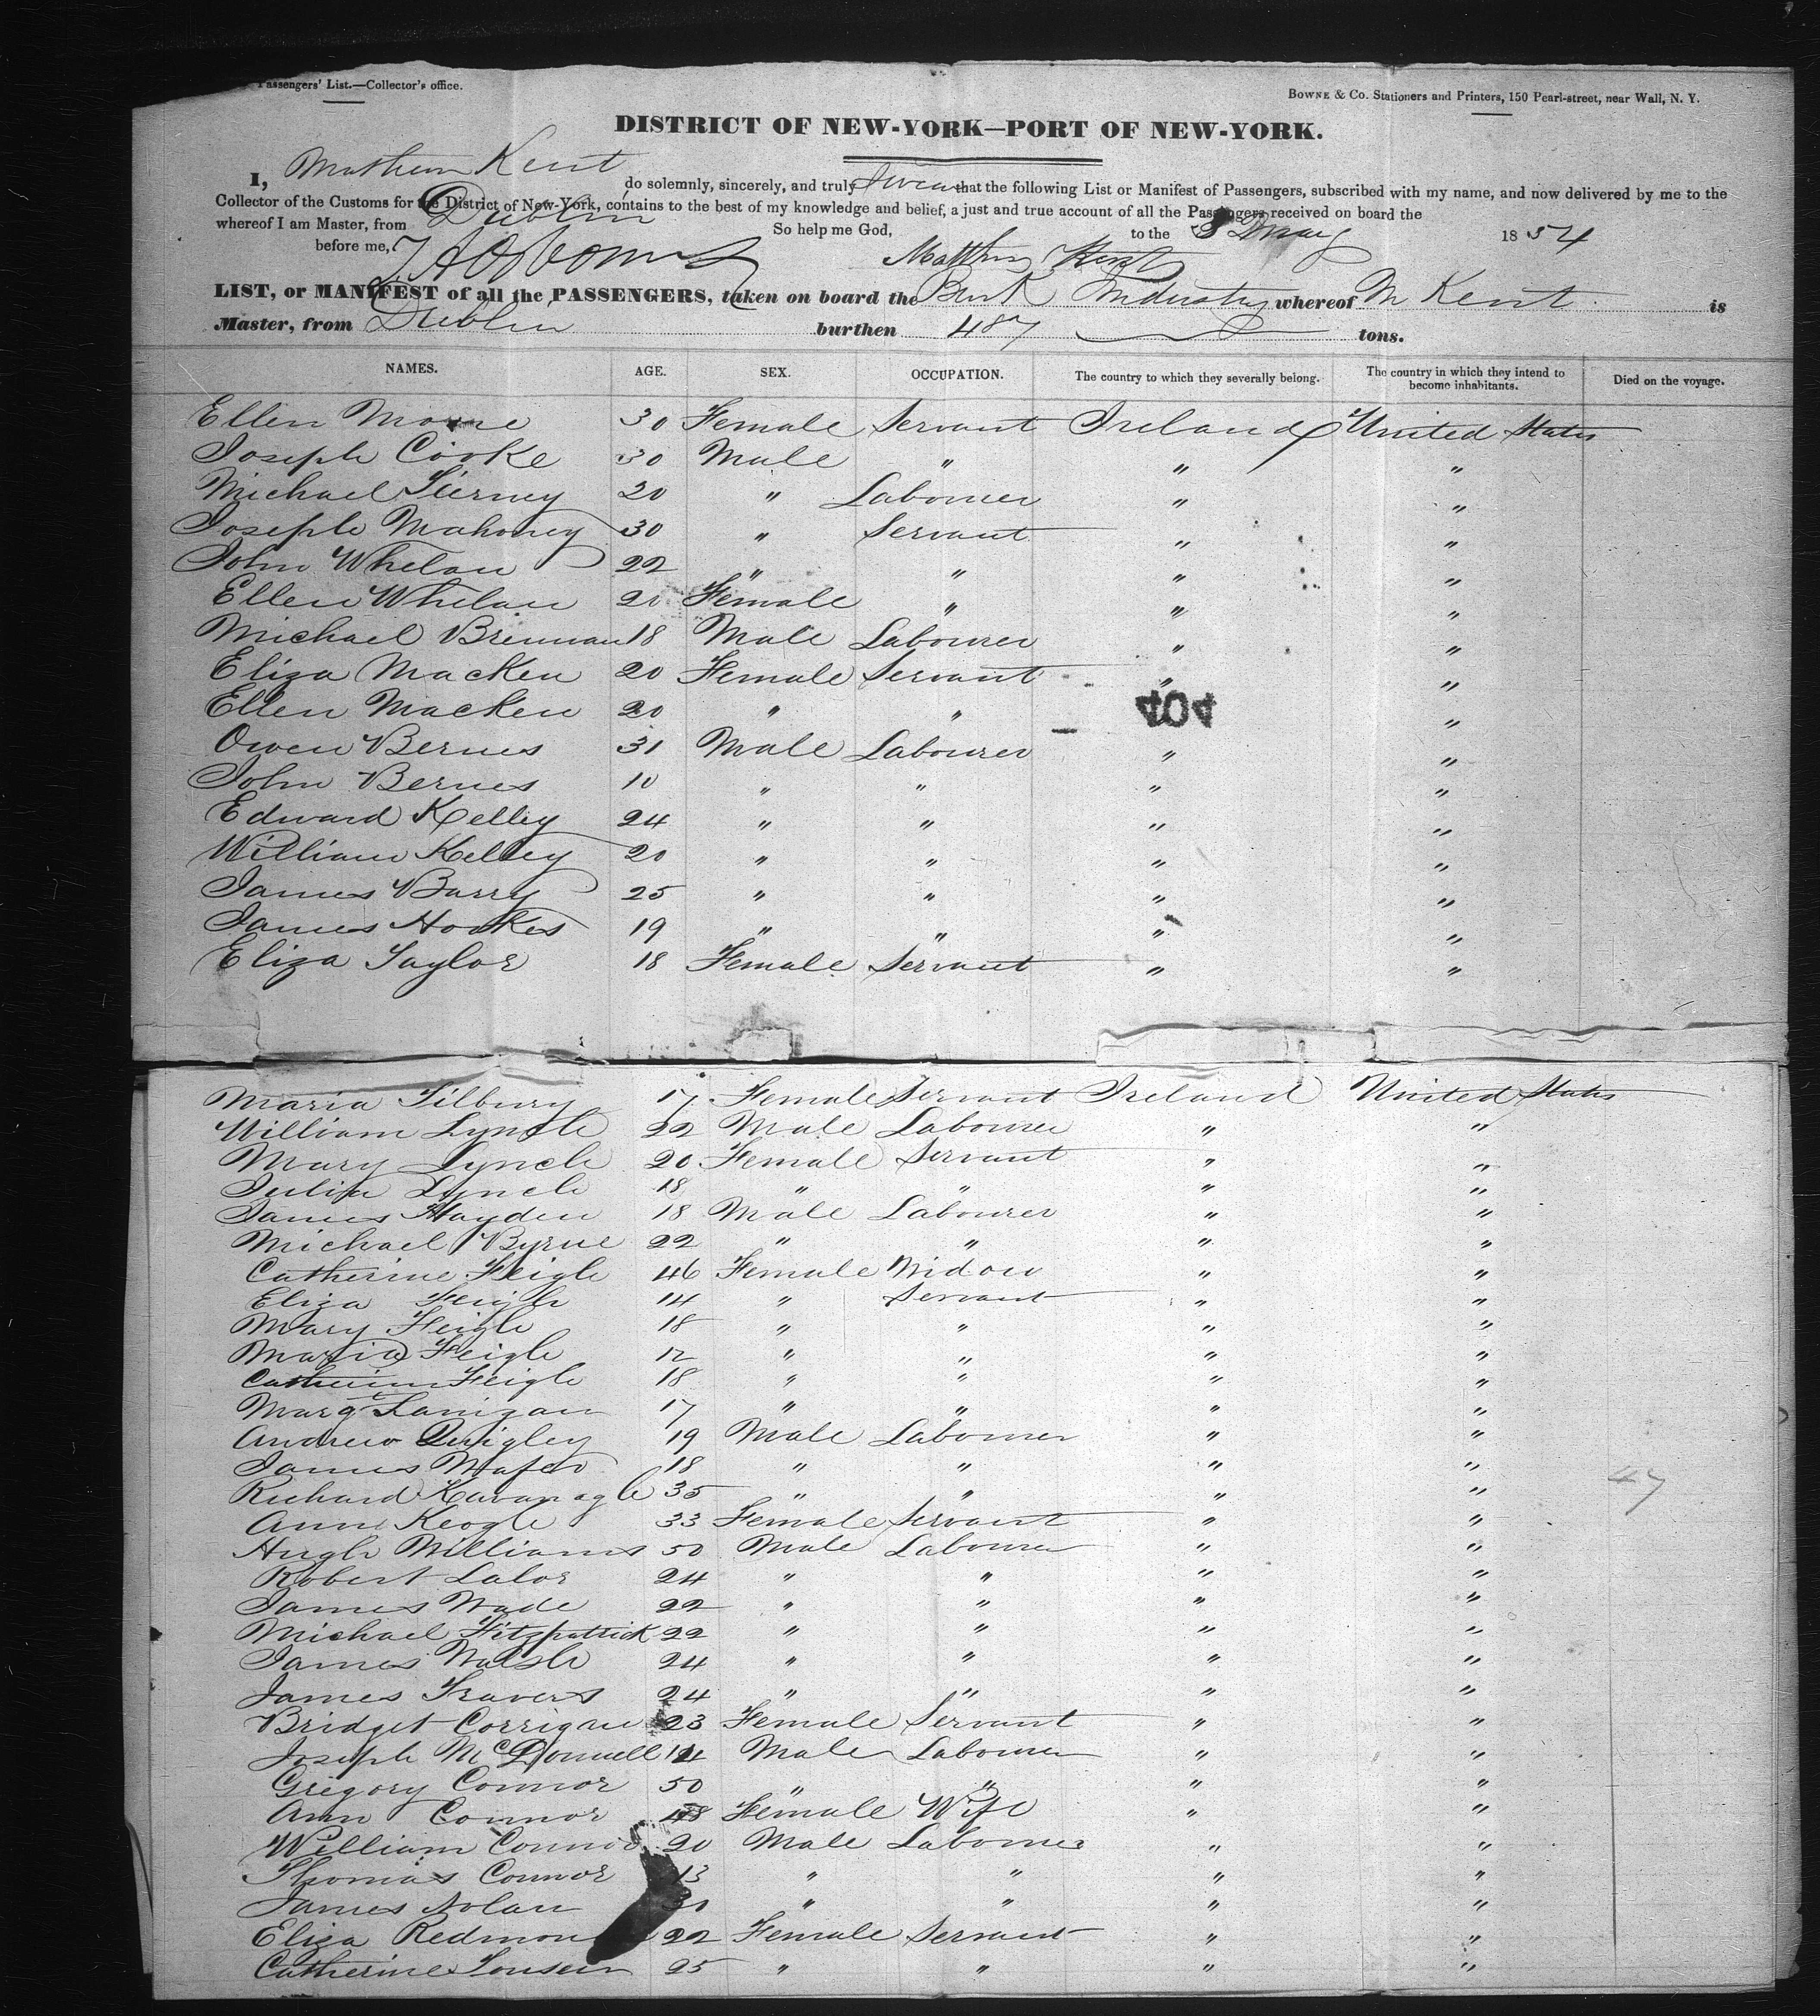 Passengers' List.—Collector's office.
BOWNE & Co. Stationers and Printers, 150 Pearl-street, near Wall, N. Y.
DISTRICT OF NEW-YORK—PORT OF NEW-YORK.
I, Mathew Kent do solemnly, sincerely, and truly swear that the following List or Manifest of Passengers, subscribed with my name, and now delivered by me to the
Collector of the Customs for the District of New-York, contains to the best of my knowledge and belief, a just and true account of all the Passengers received on board the
whereof I am Master, from Dublin
So help me God, to the 1854
before me, Matthew Kent
LIST, or MANIFEST of all the PASSENGERS, taken on board the Bark Industry whereof M Kent is
Master, from Dublin burthen 487 tons.
NAMES. AGE. SEX. OCCUPATION. The country to which they severally belong. The country in which they intend to become inhabitants. Died on the voyage.
Ellen Moore 30 Female Servant Ireland United States
Joseph Cooke 30 Male " " "
Michael Tierney 20 " Labourer " "
Joseph Mahoney 30 " Servant " "
John Whelan 22 " " " "
Ellen Whelan 20 Female " " "
Michael Brennan 18 Male Labourer " "
Eliza Macken 20 Female Servant " "
Ellen Macken 20 " " 404 "
Owen Bernes 31 Male Labourer " "
John Bernes 10 " " " "
Edward Kelley 24 " " " "
William Kelley 20 " " " "
James Barry 25 " " " "
James Hookes 19 " " " "
Eliza Taylor 18 Female Servant " "
Maria Tilbury 17 Female Servant Ireland United States
William Lynch 22 Male Labourer " "
Mary Lynch 20 Female Servant " "
Julia Lynch 18 " " " "
James Hayden 18 Male Labourer " "
Michael Byrne 22 " " " "
Catherine Feigh 46 Female Widow " "
Eliza Feigh 14 " Servant " "
Mary Feigh 18 " " " "
Maria Feigh 12 " " " "
Catherine Feigh 18 " " " "
Margt Lanigan 17 " " " "
Andrew Quigley 19 Male Labourer " "
James 18 " " " "
Richard Kavanagh 35 " " " " 47
Ann Keogh 33 Female Servant " "
Hugh Williams 50 Male Labourer " "
Robert Lalor 24 " " " "
James Wade 22 " " " "
Michael Fitzpatrick 22 " " " "
James Walsh 24 " " " "
James Travers 24 " " " "
Bridget Corrigan 23 Female Servant " "
Joseph McDonnell Male Labourer " "
Gregory Connor 50 " " " "
Ann Connor 48 Female Wife " "
William Connor 20 Male Labourer " "
Thomas Connor 13 " " " "
James Nolan 30 " " " "
Eliza Redmond 22 Female Servant " "
Catherine 25 " " " "